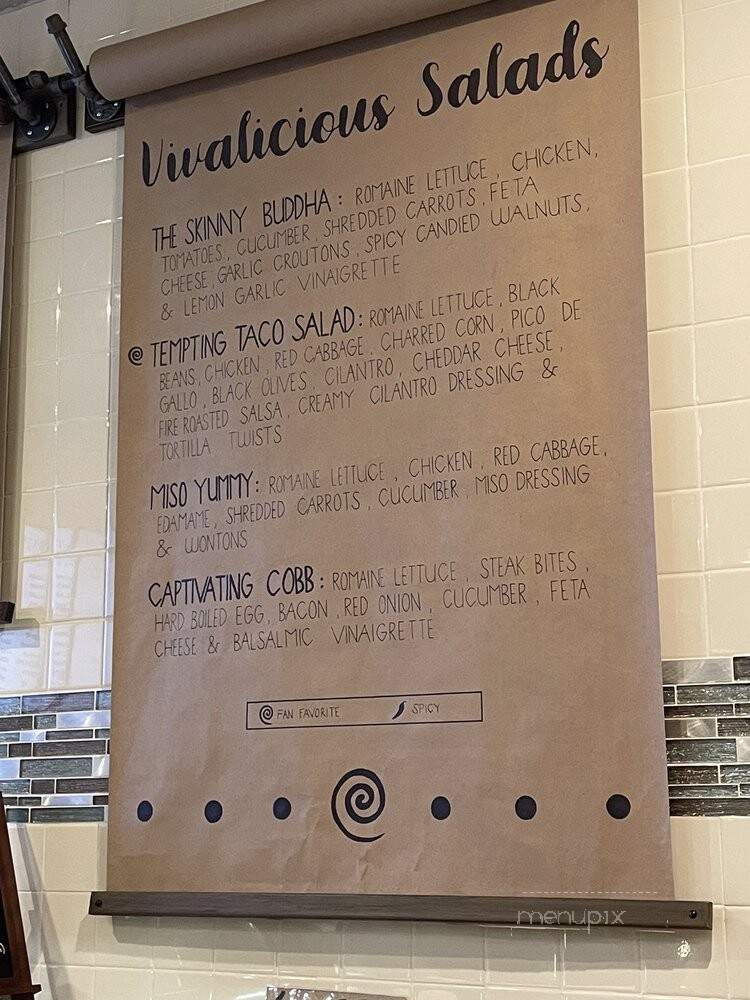 Vivalicious Salads
THE SKINNY BUDDHA: ROMAINE LETTUCE, CHICKEN,
TOMATOES, CUCUMBER, SHREDDED CARROTS, FETA
CHEESE, GARLIC CROUTONS, SPICY CANDIED WALNUTS,
& LEMON GARLIC VINAIGRETTE
TEMPTING TACO SALAD: ROMAINE LETTUCE, BLACK
BEANS, CHICKEN, RED CABBAGE, CHARRED CORN, PICO DE
GALLO, BLACK OLIVES, CILANTRO, CHEDDAR CHEESE,
FIRE ROASTED SALSA, CREAMY CILANTRO DRESSING &
TORTILLA TWISTS
MISO YUMMY: ROMAINE LETTUCE, CHICKEN, RED CABBAGE,
EDAMAME, SHREDDED CARROTS, CUCUMBER, MISO DRESSING
& WONTONS
CAPTIVATING COBB: ROMAINE LETTUCE, STEAK BITES,
HARD BOILED EGG, BACON, RED ONION, CUCUMBER, FETA
CHEESE & BALSALMIC VINAIGRETTE
FAN FAVORITE SPICY
menupix